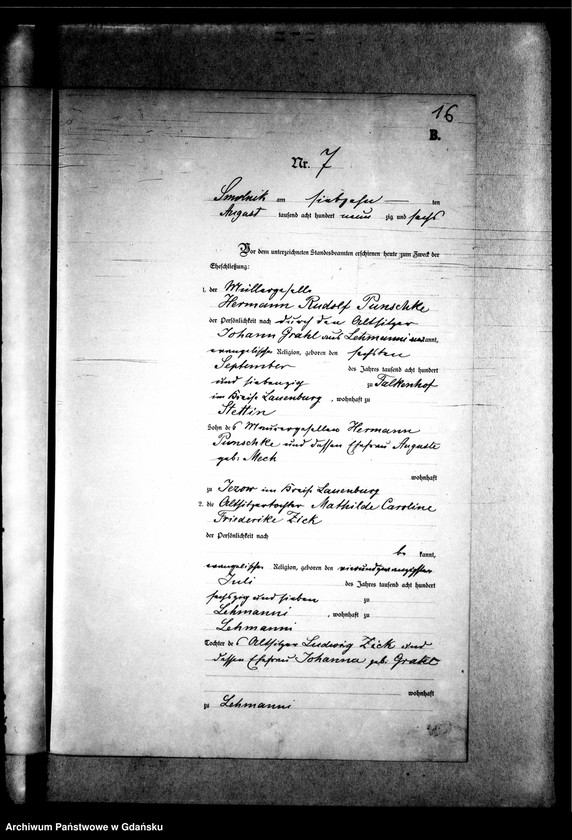 16
B.
Nr. 7
Smolnik am siebzehn ten
August tausend acht hundert neun zig und sechs
Vor dem unterzeichneten Standesbeamten erschienen heute zum Zweck der
Eheschließung:
1. der Müllergeselle
Hermann Rudolf Punschke
der Persönlichkeit nach durch den Altsitzer
Johann Grahl aus Lehmanni anerkannt,
evangelischer Religion, geboren den sechsten
September des Jahres tausend acht hundert
und siebenzig zu Falkenhof
im Kreise Lauenburg, wohnhaft zu
Stettin
Sohn des Maurergesellen Hermann
Punschke und dessen Ehefrau Auguste
geb. Mech
wohnhaft
zu Jezow im Kreise Lauenburg
2. die Altsitzertochter Mathilde Caroline
Friederike Zick
der Persönlichkeit nach
be kannt,
evangelischer Religion, geboren den vierundzwanzigsten
Juli des Jahres tausend acht hundert
sechszig und sieben zu
Lehmanni, wohnhaft zu
Lehmanni
Tochter des Altsitzer Ludwig Zick und
dessen Ehefrau Johanna geb. Grahl
wohnhaft
zu Lehmanni
Archiwum Państwowe w Gdańsku